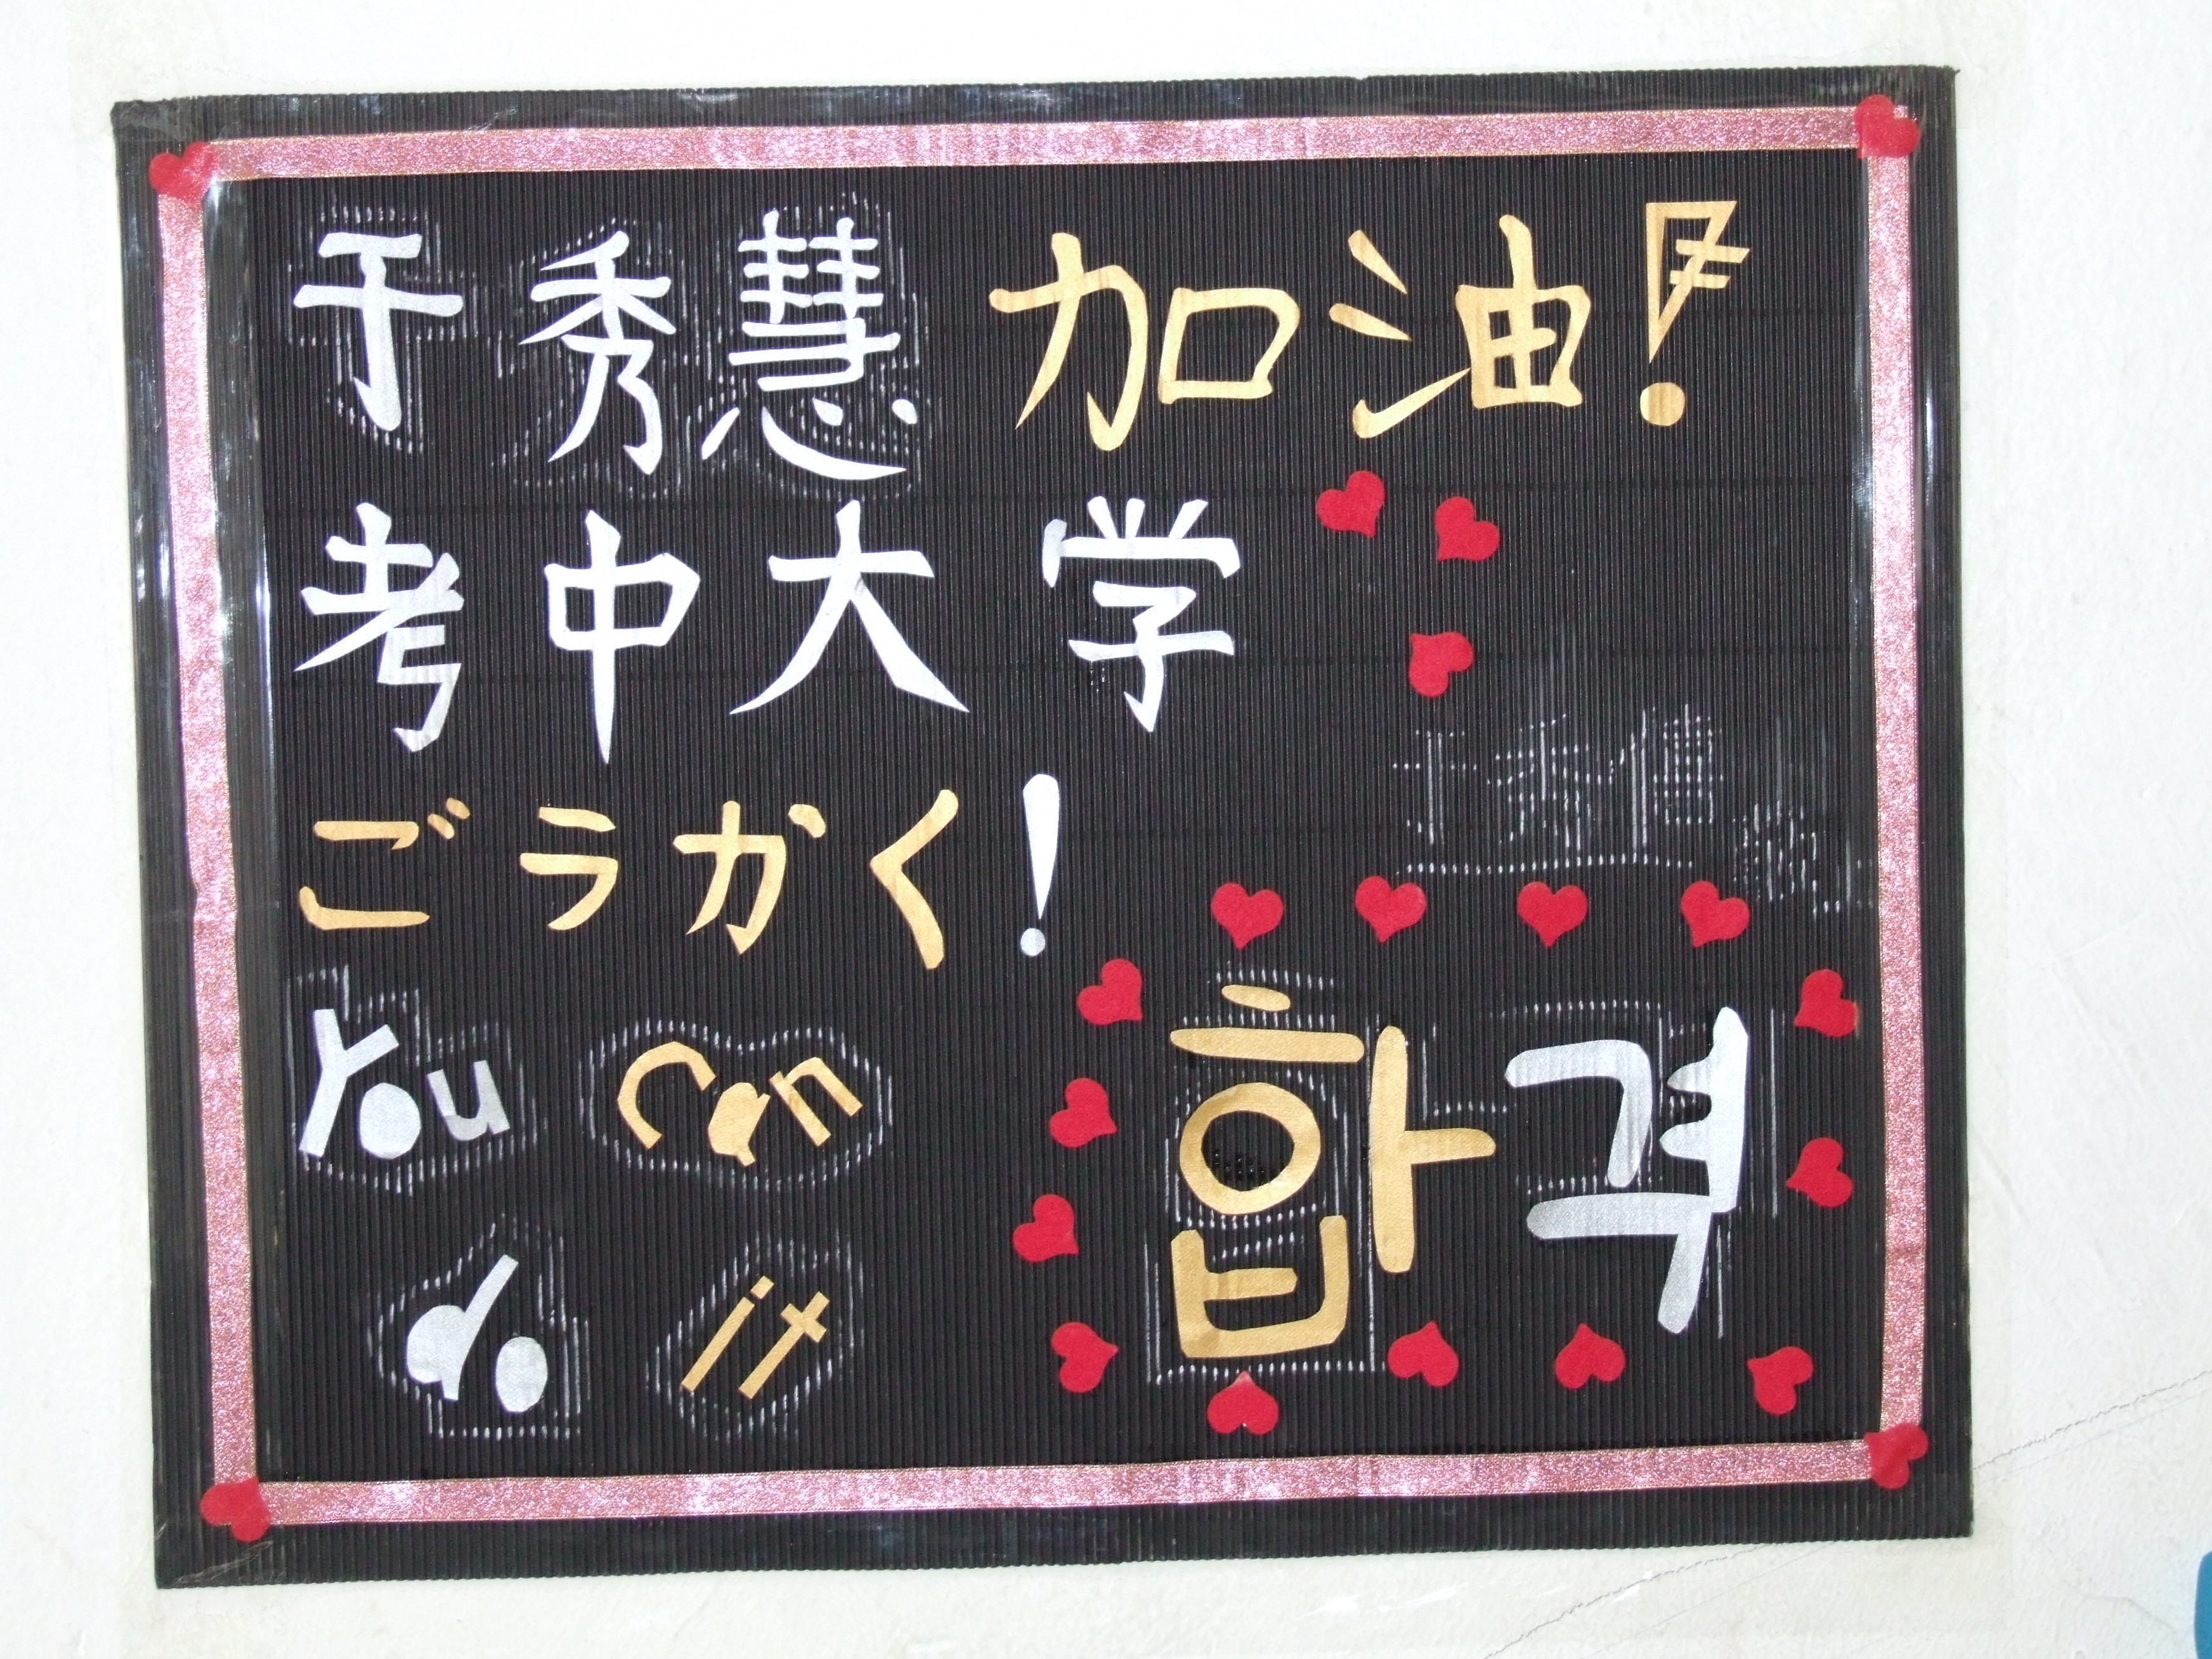 于秀慧 加油!
考中大学
ごうかく!
You Can
do it
합격